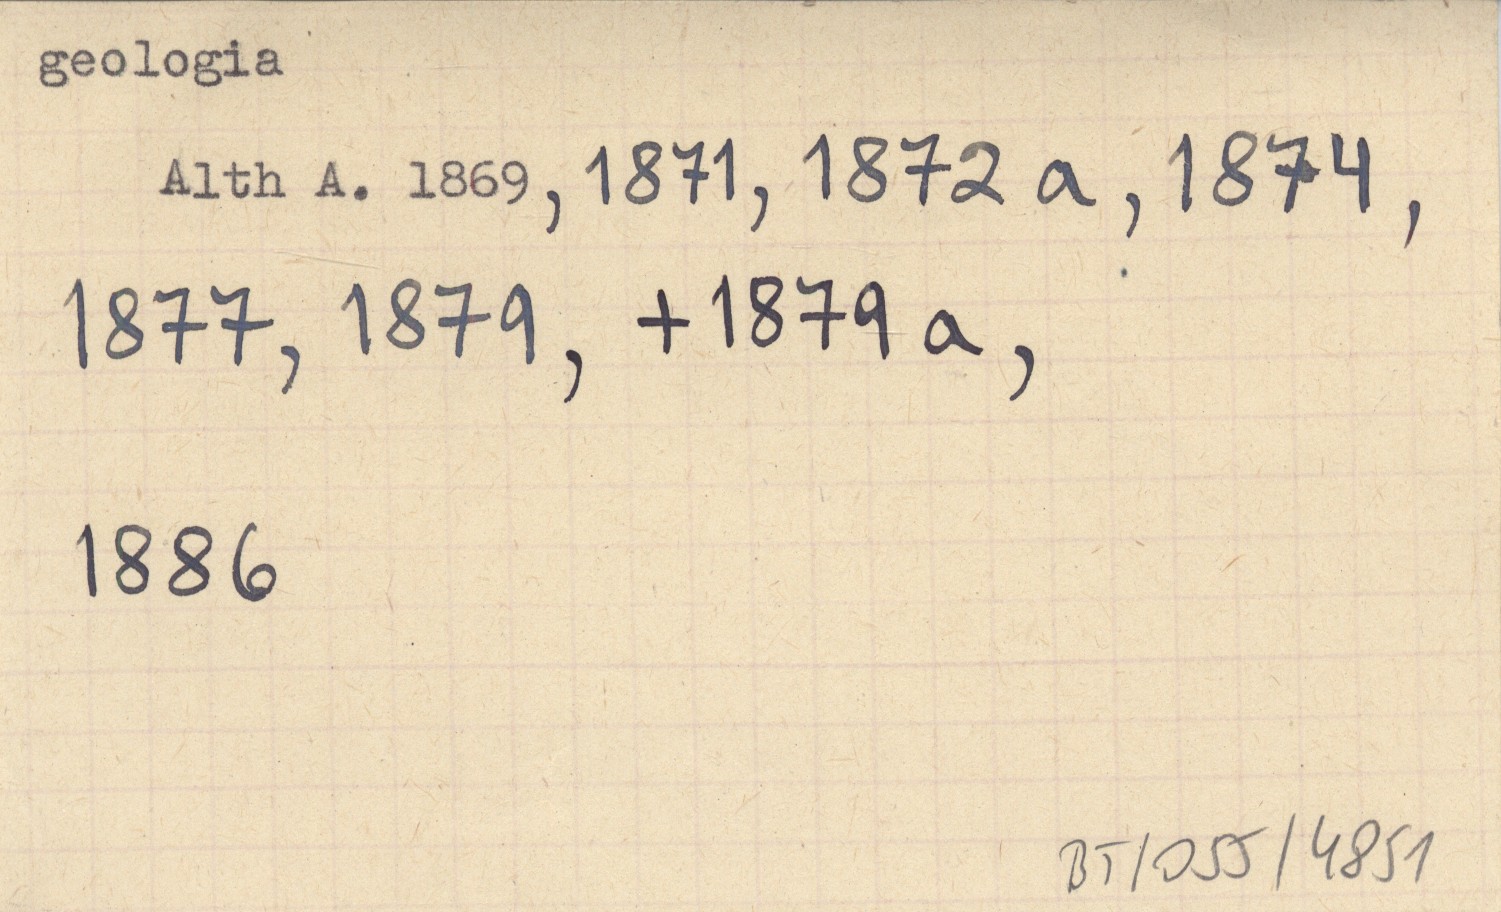 geologia
Alth A. 1869, 1871, 1872 a, 1874,
1877, 1879, +1879 a,
1886
BT/055/4851